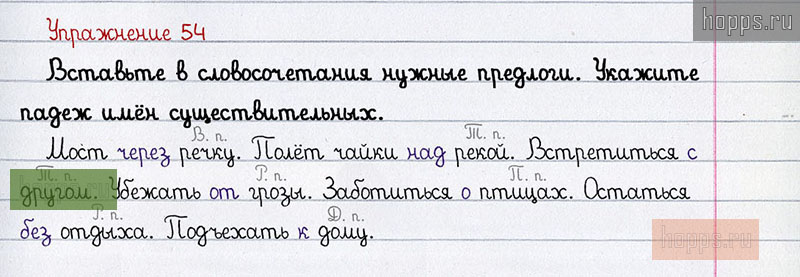 hopps.ru
Упражнение 54
Вставьте в словосочетания нужные предлоги. Укажите
падеж имён существительных.
В. п. Т. п.
Мост через речку. Полёт чайки над рекой. Встретиться с
Т. п. Р. п. П. п.
другом. Убежать от грозы. Заботиться о птицах. Остаться
Р. п. Д. п.
без отдыха. Подъехать к дому.
hopps.ru